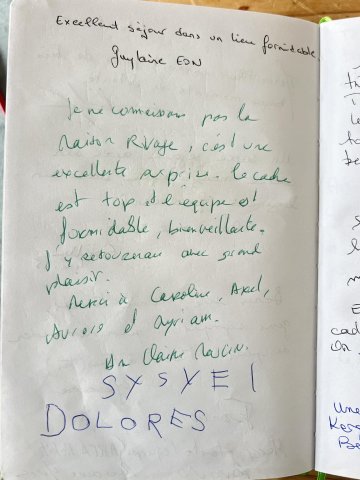 Excellent séjour dans un lieu formidable.
Guylaine EDN
Je ne connaissais pas la
Maison Rivage, c'est une
excellente surprise. le cadre
est top et l'équipe est
formidable, bienveillante.
J'y retournerai avec grand
plaisir.
Merci à Caroline, Axel,
Aurore et Myriam.
Claire
SYSYEI
DOLORES
tr
le
to
be
s
l
E
cad
on
Une